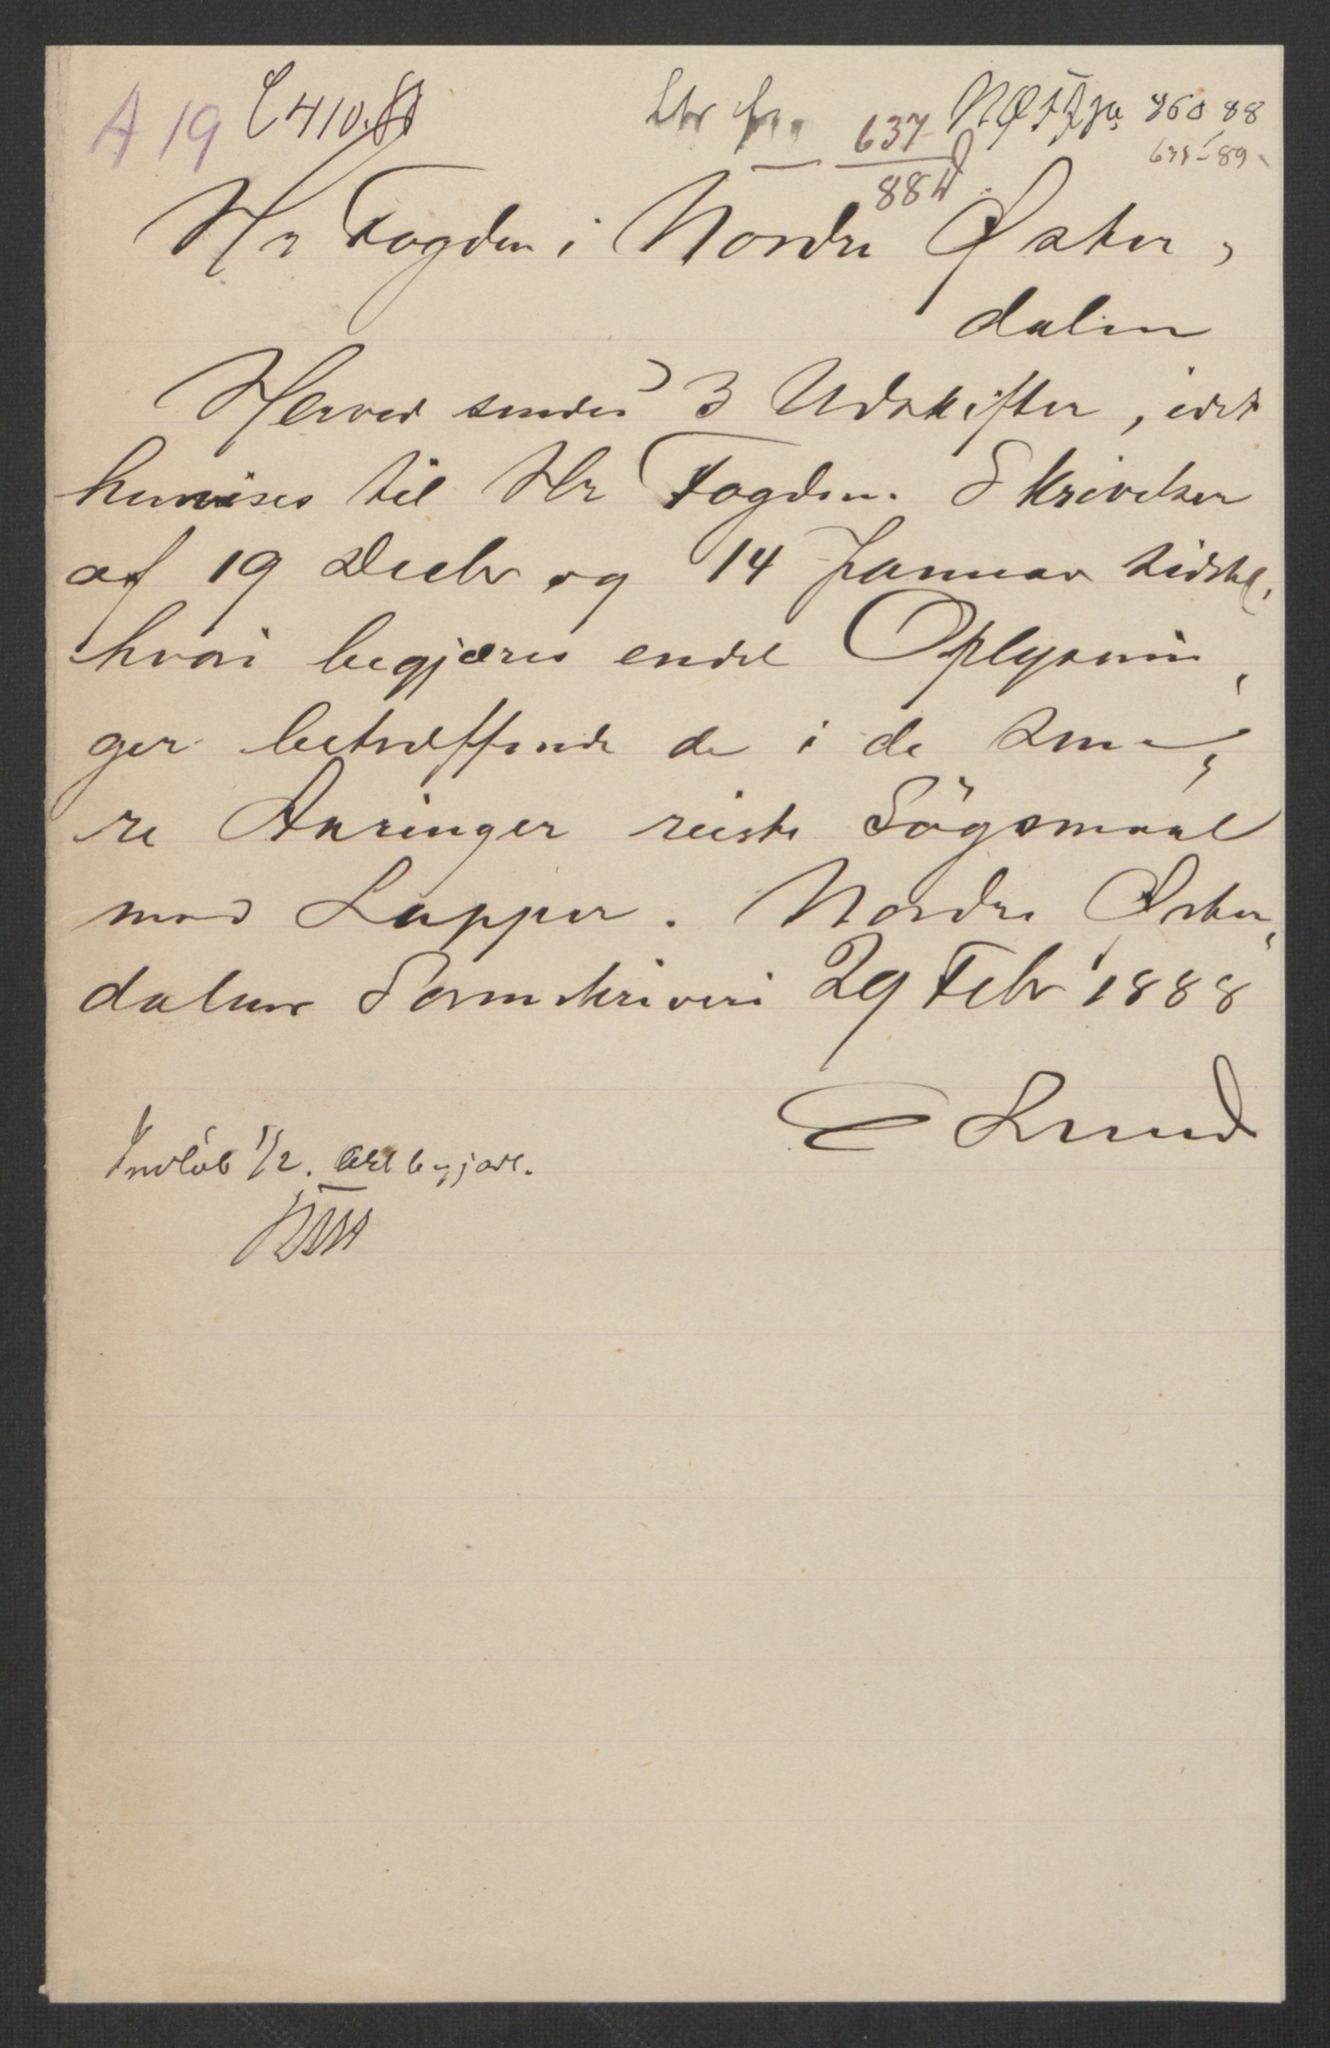 A 19 C 410.88
637 NØFJr 460 88
88 638-89
Hr Fogden i Nordre Øster,
dalen
Herved sendes 3 Udskifter, idet
henvises til Hr Fogdens Skrivelser
af 19 Decbr og 14 Januar sidstl,
hvori begjæres endel Oplysnin,
ger betræffende de i de sene,
re Aaringer reiste Søgsmaal
mod Lapper. Nordre Øster,
dalens Sorenskriveri 29 Febr 1888
E Lund
Indløb 1/2. begjært.